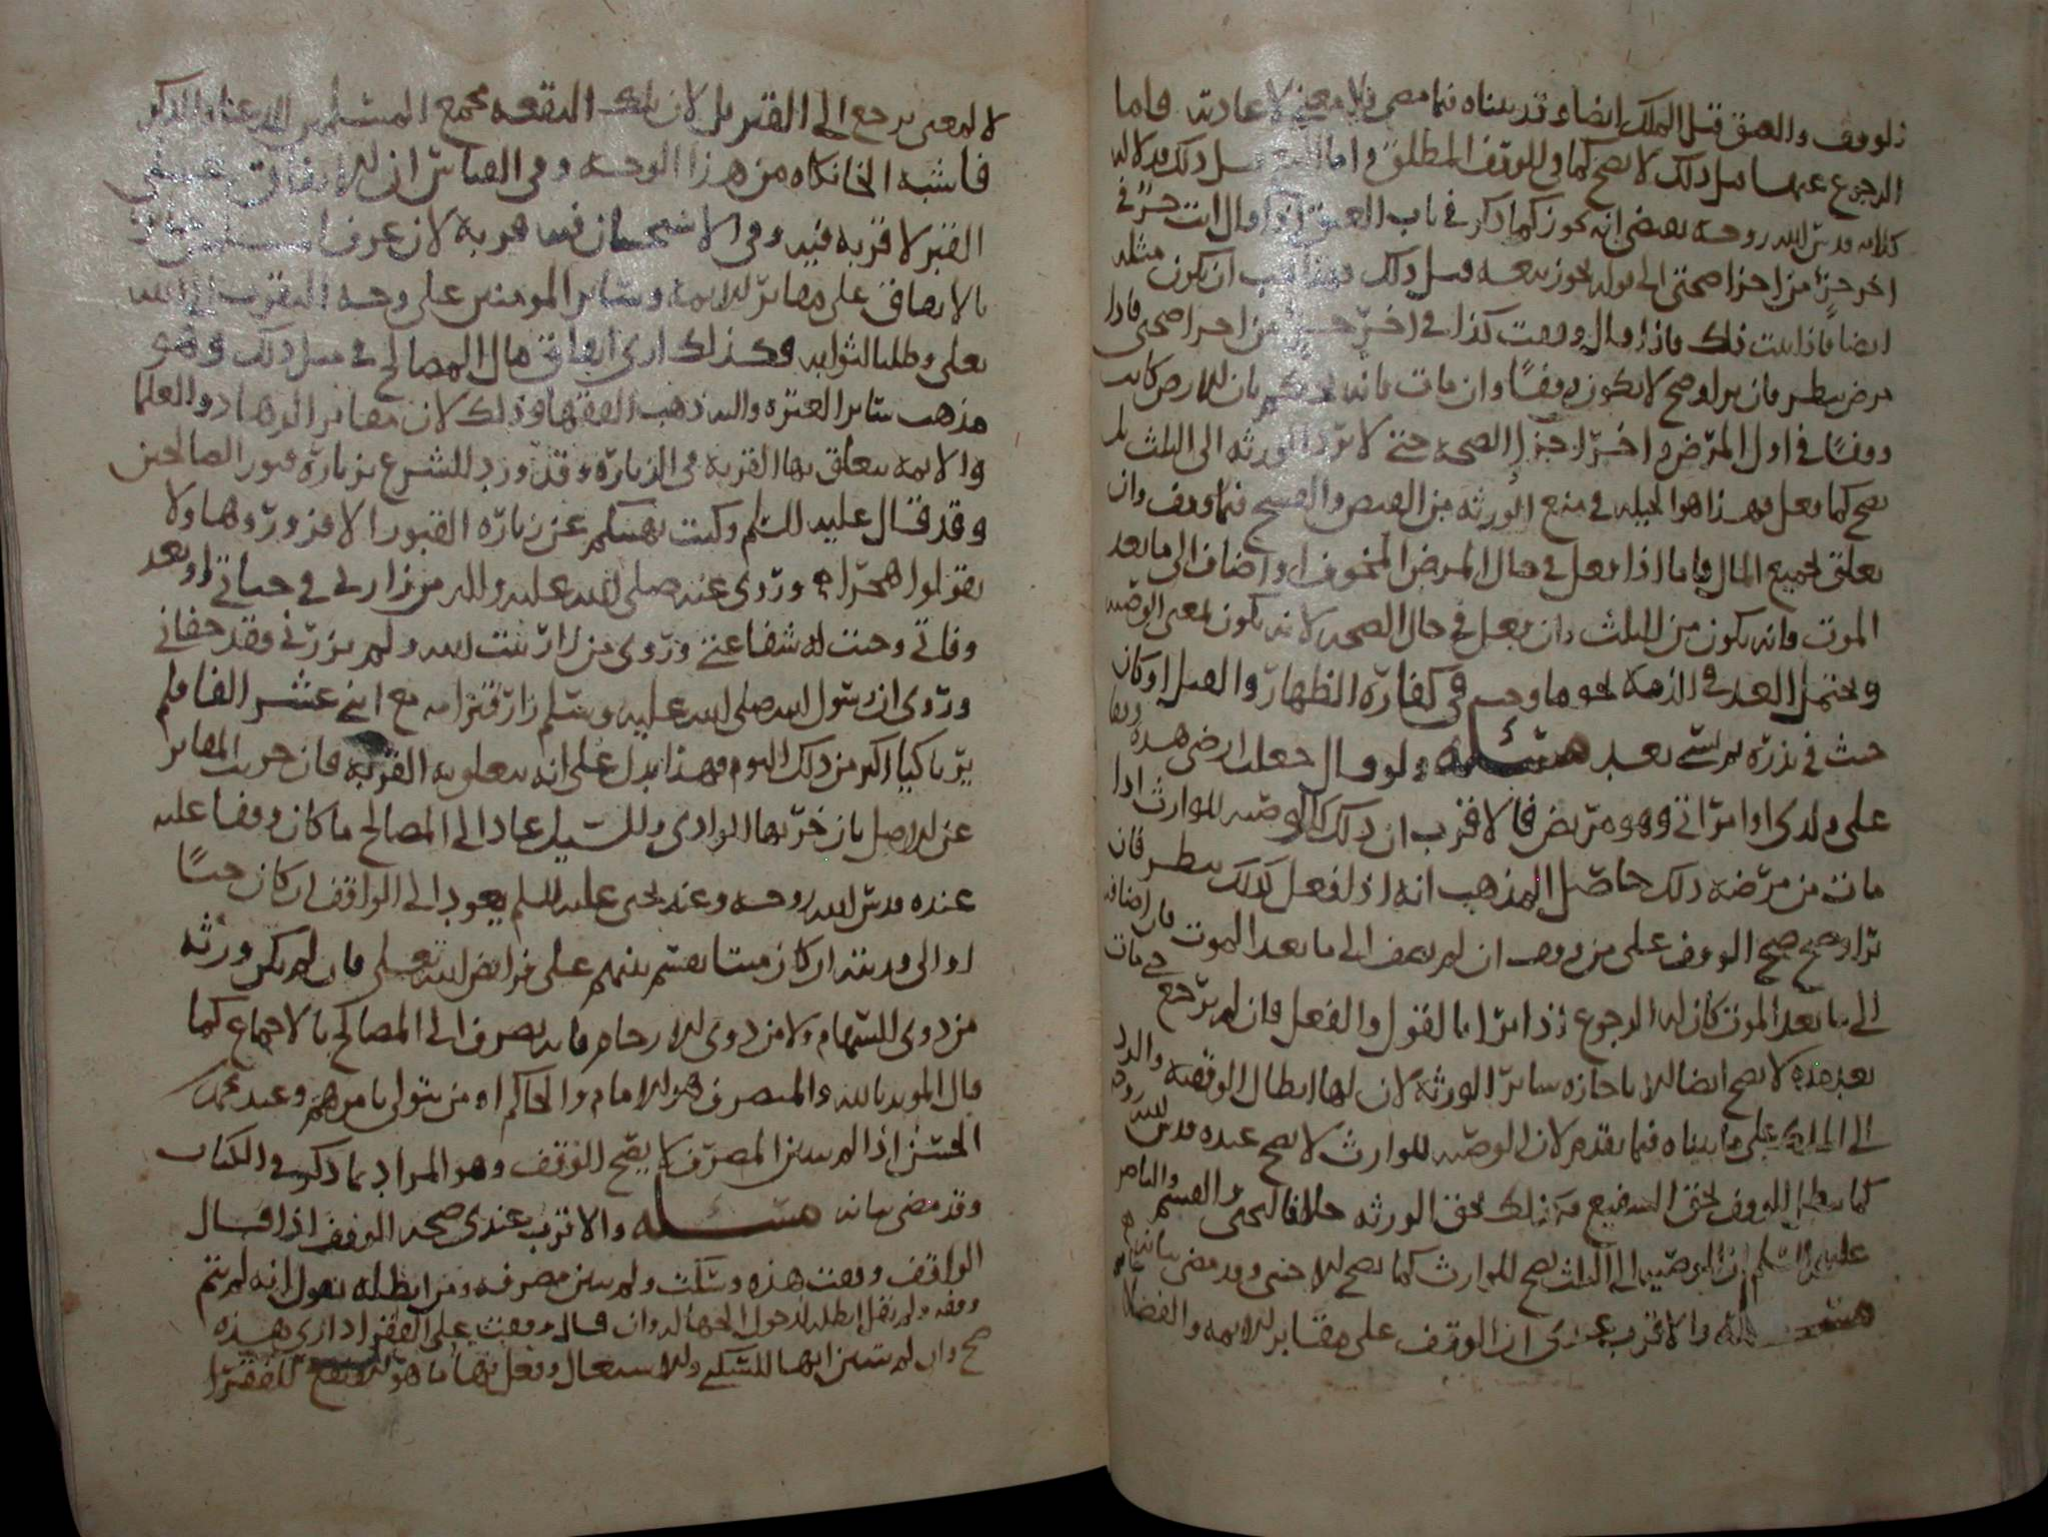 والعتق قبل الملك ايضا وقد بيناه فيما مضى فلا معنى لاعادته فاما
الرجوع عنها قبل ذلك لا يصح كما في الوقف المطلق واما البيع قبل ذلك فدلالة
كلامه قدس الله روحه يقضي انه يجوز كما ذكر في باب العتق اذا قال انت حر في
اخر جزء من اجزا صحتي الى قوله يجوز بيعه قبل ذلك ان يكون مثله
ايضا فاذا ثبت ذلك فاذا قال وقفت كذا في اخر جزء من اجزا صحتي فاذا
مرض ينظر فان برا وصح لا يكون وقفا وان مات فانه بان الارض كانت
وقفا في اول المرض و اخر اجزا الصحة حتى لا ترد الورثة الى الثلث بل
يصح كما فعل فهذا هو الحيلة في منع الورثة من القبض والفسخ فيما وقف وان
تعلق بجميع المال فاما اذا فعل في حال المرض المخوف او اضاف الى ما بعد
الموت فانه يكون من الثلث وان فعل في حال الصحة لانه يكون بمعنى الوصية
ويحتمل العبد في الذمة نحو ما وجب في كفارة الظهار والقتل او كان
حنث في نذره بعبد مسئلة ولو قال جعلت ارضي هذه وقفا
على ولدي او امراتي وهو مريض فالاقرب ان ذلك كالوصية للوارث اذا
مات من مرضه ذلك حاصل المذهب انه اذا فعل كذلك ينظر فان
برا وصح صح الوقف على من وقف ان لم يضف الى ما بعد الموت فان اضاف
الى ما بعد الموت كان له الرجوع اذا برا بالقول والفعل فان لم يرجع حتى مات
بعد هذه لا يصح ايضا الا باجازة سائر الورثة لان لها ابطال الوقفية والرد
الى الملك على ما بيناه فيما تقدم لان الوصية للوارث لا يصح عنده قدس الله روحه
كما يبطل الوقف لحق الشفيع فكذلك بحق الورثة خلافا ليحيى والقسم والناصر
عليهم السلم ان الوصية الى الثلث يصح للوارث كما يصح للاجنبي وقد مضى بيانه
مسئلة والاقرب عندي ان الوقف على مقابر الائمة والفضلا
لا لمعنى يرجع الى القبر بل لان تلك البقعة مجمع المسلمين
فاشبه الخانكاه من هذا الوجه وفي القياس ان الانفاق على
القبر لا قربة فيه وفي الاستحسان فيه قربة لان عرف
بالانفاق على مقابر الائمة وسائر المومنين على وجه التقرب الى الله
تعلى وطلبا لثوابه وكذلك ارى انفاق مال المصالح في مثل ذلك وهو
مذهب سائر العترة واليه ذهب الفقها وذلك لان مقابر الزهاد والعلما
والائمة يتعلق بها القربة في الزيارة وقد ورد الشرع بزيارة قبور الصالحين
وقد قال عليه السلم وكنت نهيتكم عن زيارة القبور الا فزوروها ولا
تقولوا هجرا وروي عنه صلى الله عليه واله من زارني في حياتي او بعد
وفاتي وجبت له شفاعتي وروي من زار بيت الله ولم يزرني فقد جفاني
وروي ان رسول الله صلى الله عليه وسلم زار قبر امه مع اثنى عشر الفا فلم
ير باكيا اكثر من ذلك اليوم فهذا يدل على انه يتعلق به القربة فان خربت المقابر
عن الاصل بان خربها الوادي والسيل عاد الى المصالح ما كان وقفا عليه
عنده قدس الله روحه وعند يحيى عليه السلم يعود الى الواقف ان كان حيا
او الى ورثته ان كان ميتا يقسم بينهم على فرائض الله تعلى فان لم يكن ورثة
من ذوي السهام ولا من ذوي الارحام فانه يصرف الى المصالح بالاجماع كما
قال المويد بالله والمتصرف هو الامام والحاكم او من يتولى بامرهم وعند محمد
الحسن اذا لم يبين المصرف لا يصح الوقف وهو المراد بما ذكر في الكتاب
وقد مضى بيانه مسئلة والاقرب عندي صحة الوقف اذا قال
الواقف وقفت هذه وسكت ولم يبين مصرفه ومن ابطله يقول انه لم يتم
وقفه ولم نقل ابطله لدخول الجهالة وان قال وقفت على الفقرا داري هذه
صح وان لم يبين انها للسكنى والاستعمال وفعل فيها ما هو انفع للفقرا